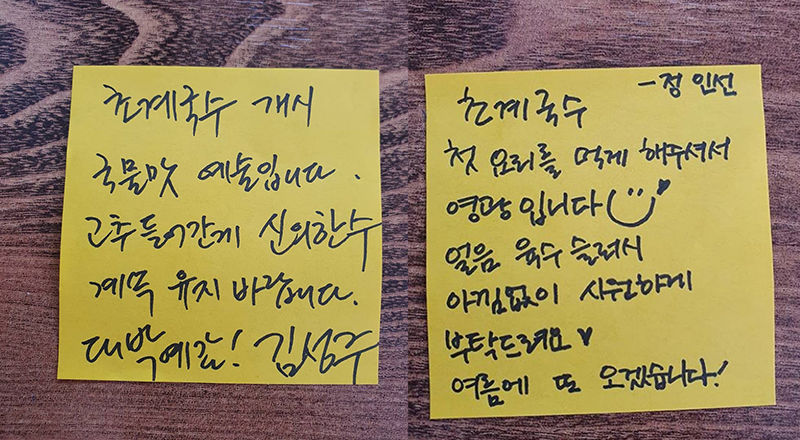 초계국수 개시
국물맛 예술입니다.
고추 들어간게 신의한수
계속 유지 바랍니다.
대박예감! 김성주
-정인선
초계국수
첫 요리를 먹게 해주셔서
영광입니다
얼음 육수 슬러시
아낌없이 시원하게
부탁드려요♥
여름에 또 오겠습니다!